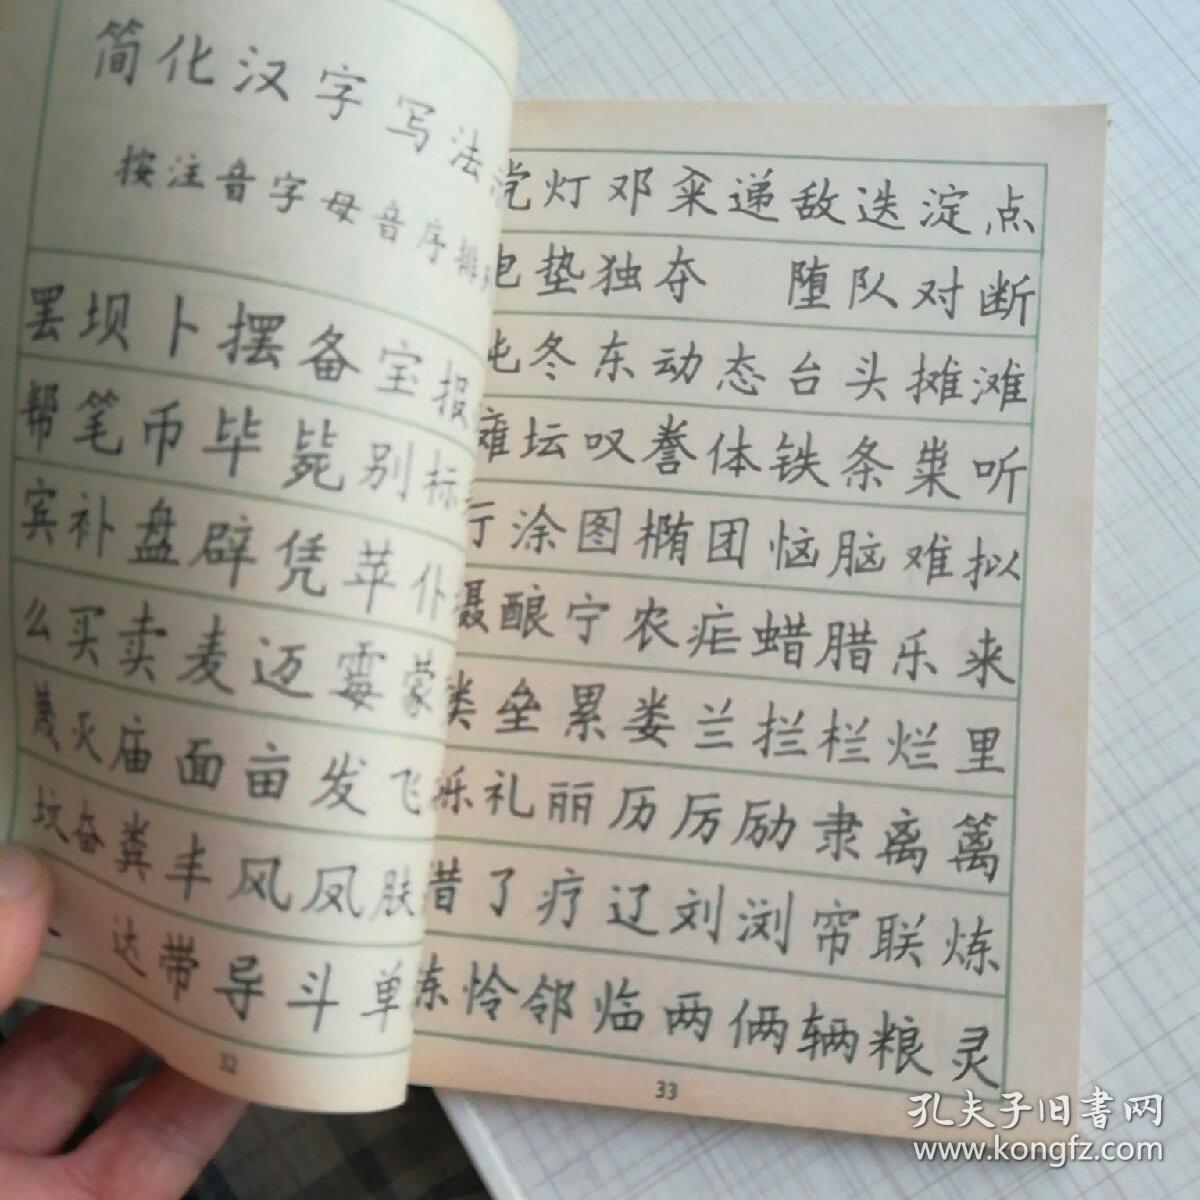 简化汉字写法
按注音字母音序排
罢坝卜摆备宝报
帮笔币毕毙别标
宾补盘辟凭苹仆
么买卖麦迈霉蒙
蔑灭庙面亩发飞
坟奋粪丰风凤肤
达带导斗单
32
党灯邓籴递敌迭淀点
电垫独夺 堕队对断
吨冬东动态台头摊滩
瘫坛叹誊体铁条粜听
厅涂图椭团恼脑难拟
酿宁农疟蜡腊乐来
类垒累娄兰拦栏烂里
砾礼丽历厉励隶离篱
了疗辽刘浏帘联炼
怜邻临两俩辆粮灵
33
孔夫子旧書网
www.kongfz.com